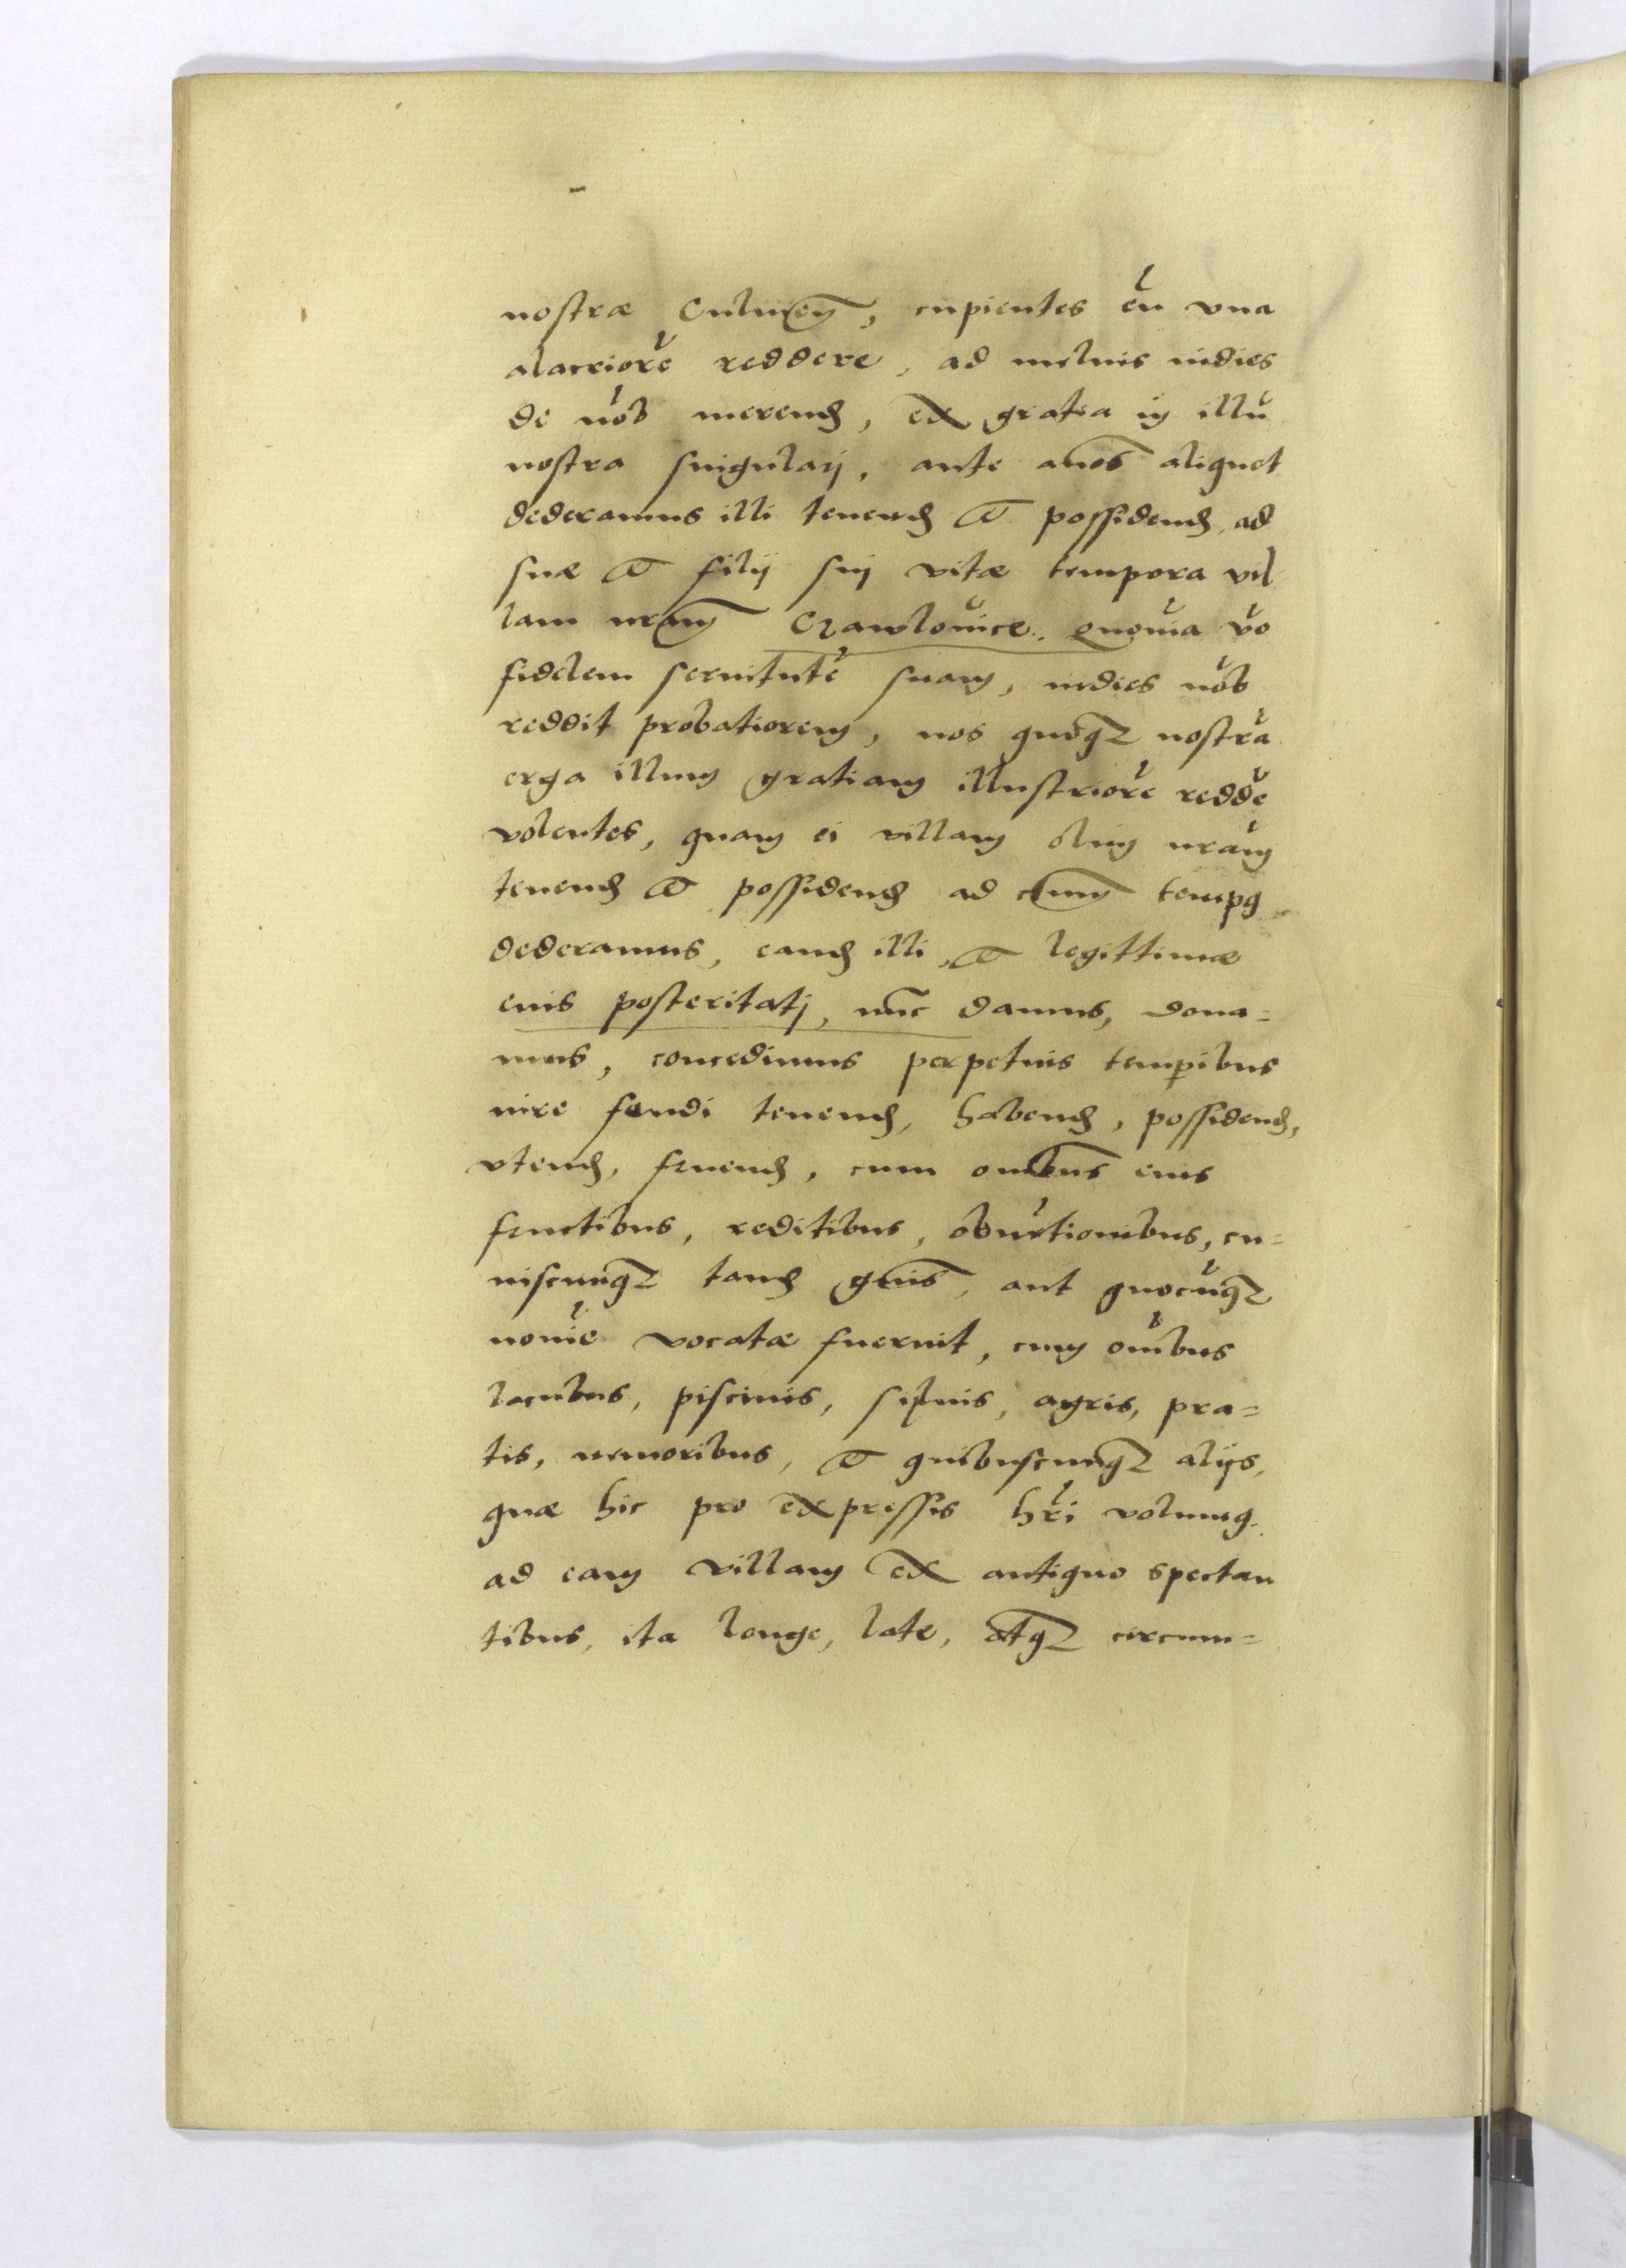 nostræ Culmeñ, cupientes eũ vna
alacriorẽ reddere, ad melius indies
de nob̃ merend, ex gratia in illũ
nostra singularj, ante anos̃ aliquot
dederamus illi tenend et possidend, ad
suæ et filij sui vitæ tempora vil
lam nram̃ Czawlouice. Quonia ṽo
fidelem seruitutẽ suam, indies nob̃
reddit probatiorem, nos quoqȝ nostrã
erga illum gratiam illustriorẽ reddẽ
volentes, quam ei villam olim nram̃
tenend et possidend ad tempg
dederamus, eand illi, et legittimæ
eius posteritatj, nũc damus, dona=
mus, concedimus perpetuis temp̱ibus
iure feudi tenend, habend, possidend,
vtend, fruend, cum omibus̃ eius
fructibus, reditibus, obũetionibus, cu=
iuscunqȝ tand gnis̃, aut quocũqȝ
noiẽ vocatæ fuerint, cum oĩbus
lacubus, piscinis, siluis, agris, pra=
tis, nemoribus, et quibuscunqȝ alijs,
quæ hic pro expressis hr̃i volumg
ad eam villam ex antiquo spectan
tibus, ita longe, late, atqȝ circum=